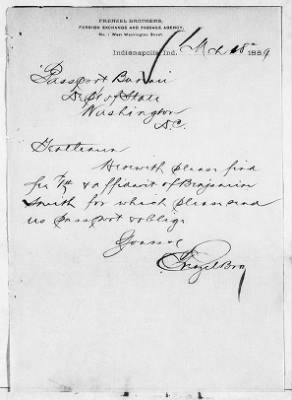 FRENZEL BROTHERS,
FOREIGN EXCHANGE AND PASSAGE AGENCY,
No. 1 West Washington Street.
Indianapolis, Ind. Mch 18th 1889
Passport Bureau
Dept of State
Washington
D.C.
Gentlemen
Herewith please find
fee & affidavit of Benjamin
Smith for which please send
us passport & oblige
Yours &c
Frenzel Bros